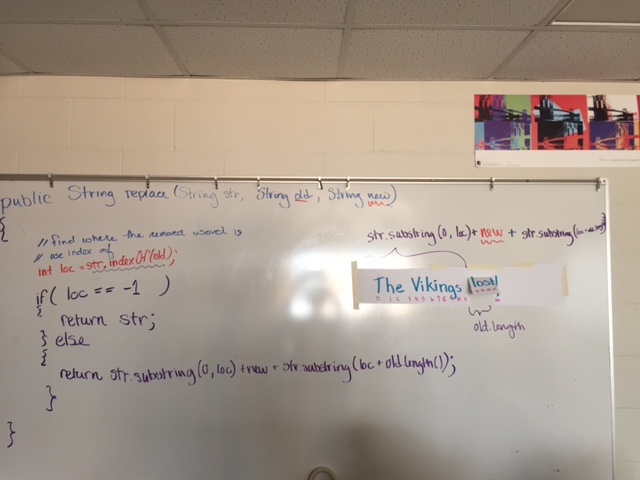 public String replace (String str, String old, String new)
{
// find where the removed word is
// use index of
int loc = str.indexOf(old);
if( loc == -1 )
{
return str;
} else
{
return str.substring(0, loc) + new + str.substring(loc + old.length());
}
}
str.substring(0, loc) + new + str.substring(
The Vikings lost!
old.length